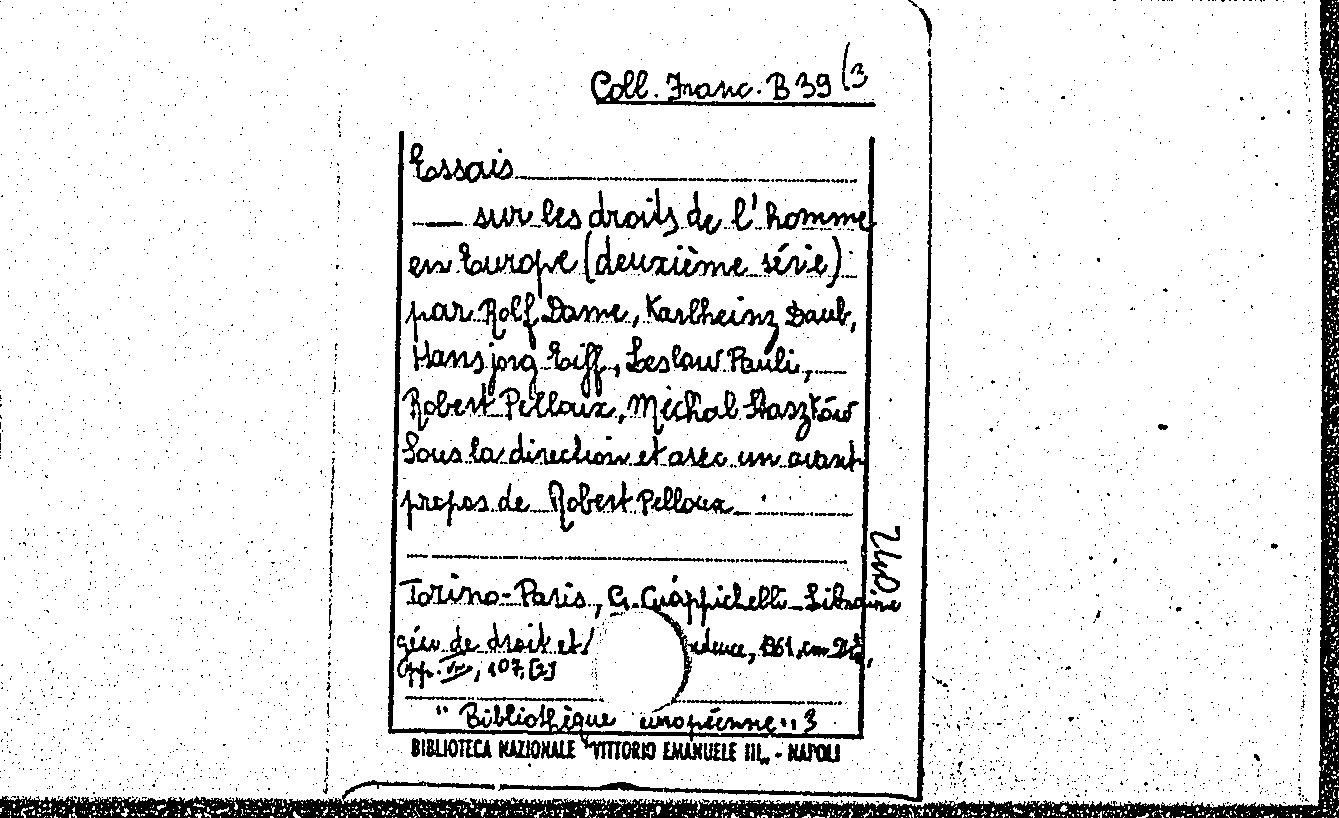 Coll. Franc. B 39 (3
Essais
— sur les droits de l'homme
en Europe (deuxième série)
par Rolf Dame, Karlheinz Daub,
Hansjorg Eiff, Leslaw Pauli,
Robert Pelloux, Michal Stasztów
Sous la direction et avec un avant
propos de Robert Pelloux
Torino-Paris, G. Giappichelli - Librairie
gén de droit et dence, 1961, cm
pp. VIII, 107, [2]
"Bibliothèque uropéenne" 3
BIBLIOTECA NAZIONALE "VITTORIO EMANUELE III" - NAPOLI